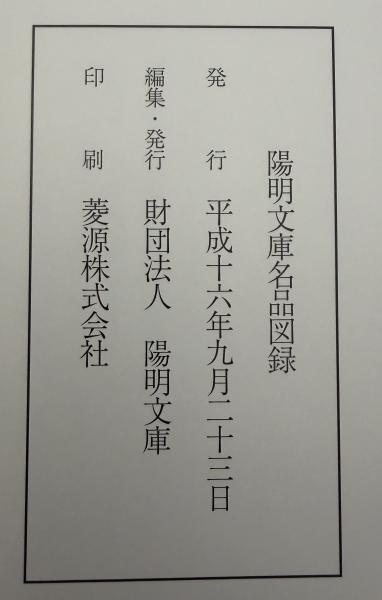 陽明文庫名品図録
発行 平成十六年九月二十三日
編集・発行 財団法人 陽明文庫
印刷 菱源株式会社